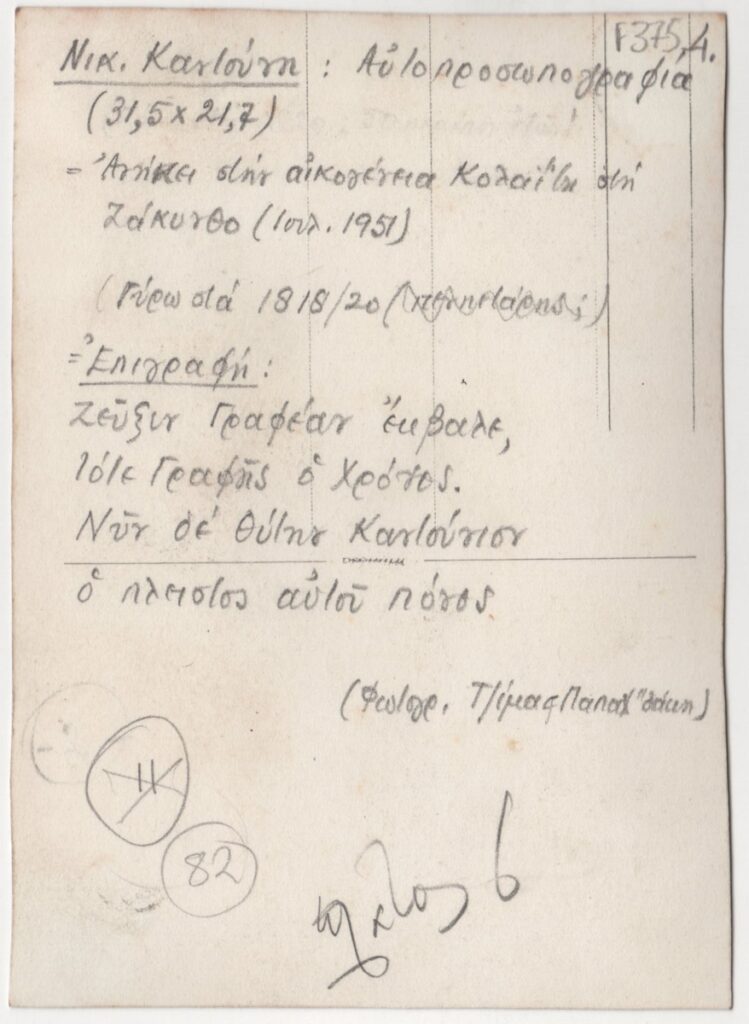 F375,4.
Νικ. Καντούνη : Αὐτοπροσωπογραφία
(31,5 x 21,7)
= Ἀνήκει στήν οἰκογένεια Κολαΐτη στή
Ζάκυνθο (Ιουλ. 1951)
(Γύρω στά 1818/20 (
= Ἐπιγραφή :
Ζεῦξιν Γραφέαν ἔκβαλε,
τότε Γραφῆς ὁ Χρόνος.
Νῦν δέ θύτην Καντούνιον
ὁ πλεῖστος αὐτοῦ πόνος
(Φωτογρ. Τζίμας Παπαχ"δάκη)
11
82
6